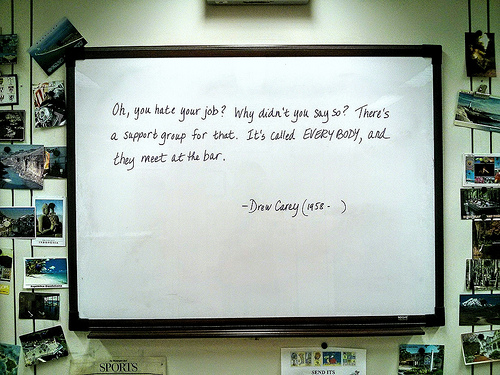 Oh, you hate your job? Why didn't you say so? There's
a support group for that. It's called EVERYBODY, and
they meet at the bar.
-Drew Carey (1958 - )
SPORTS
SEND ITS